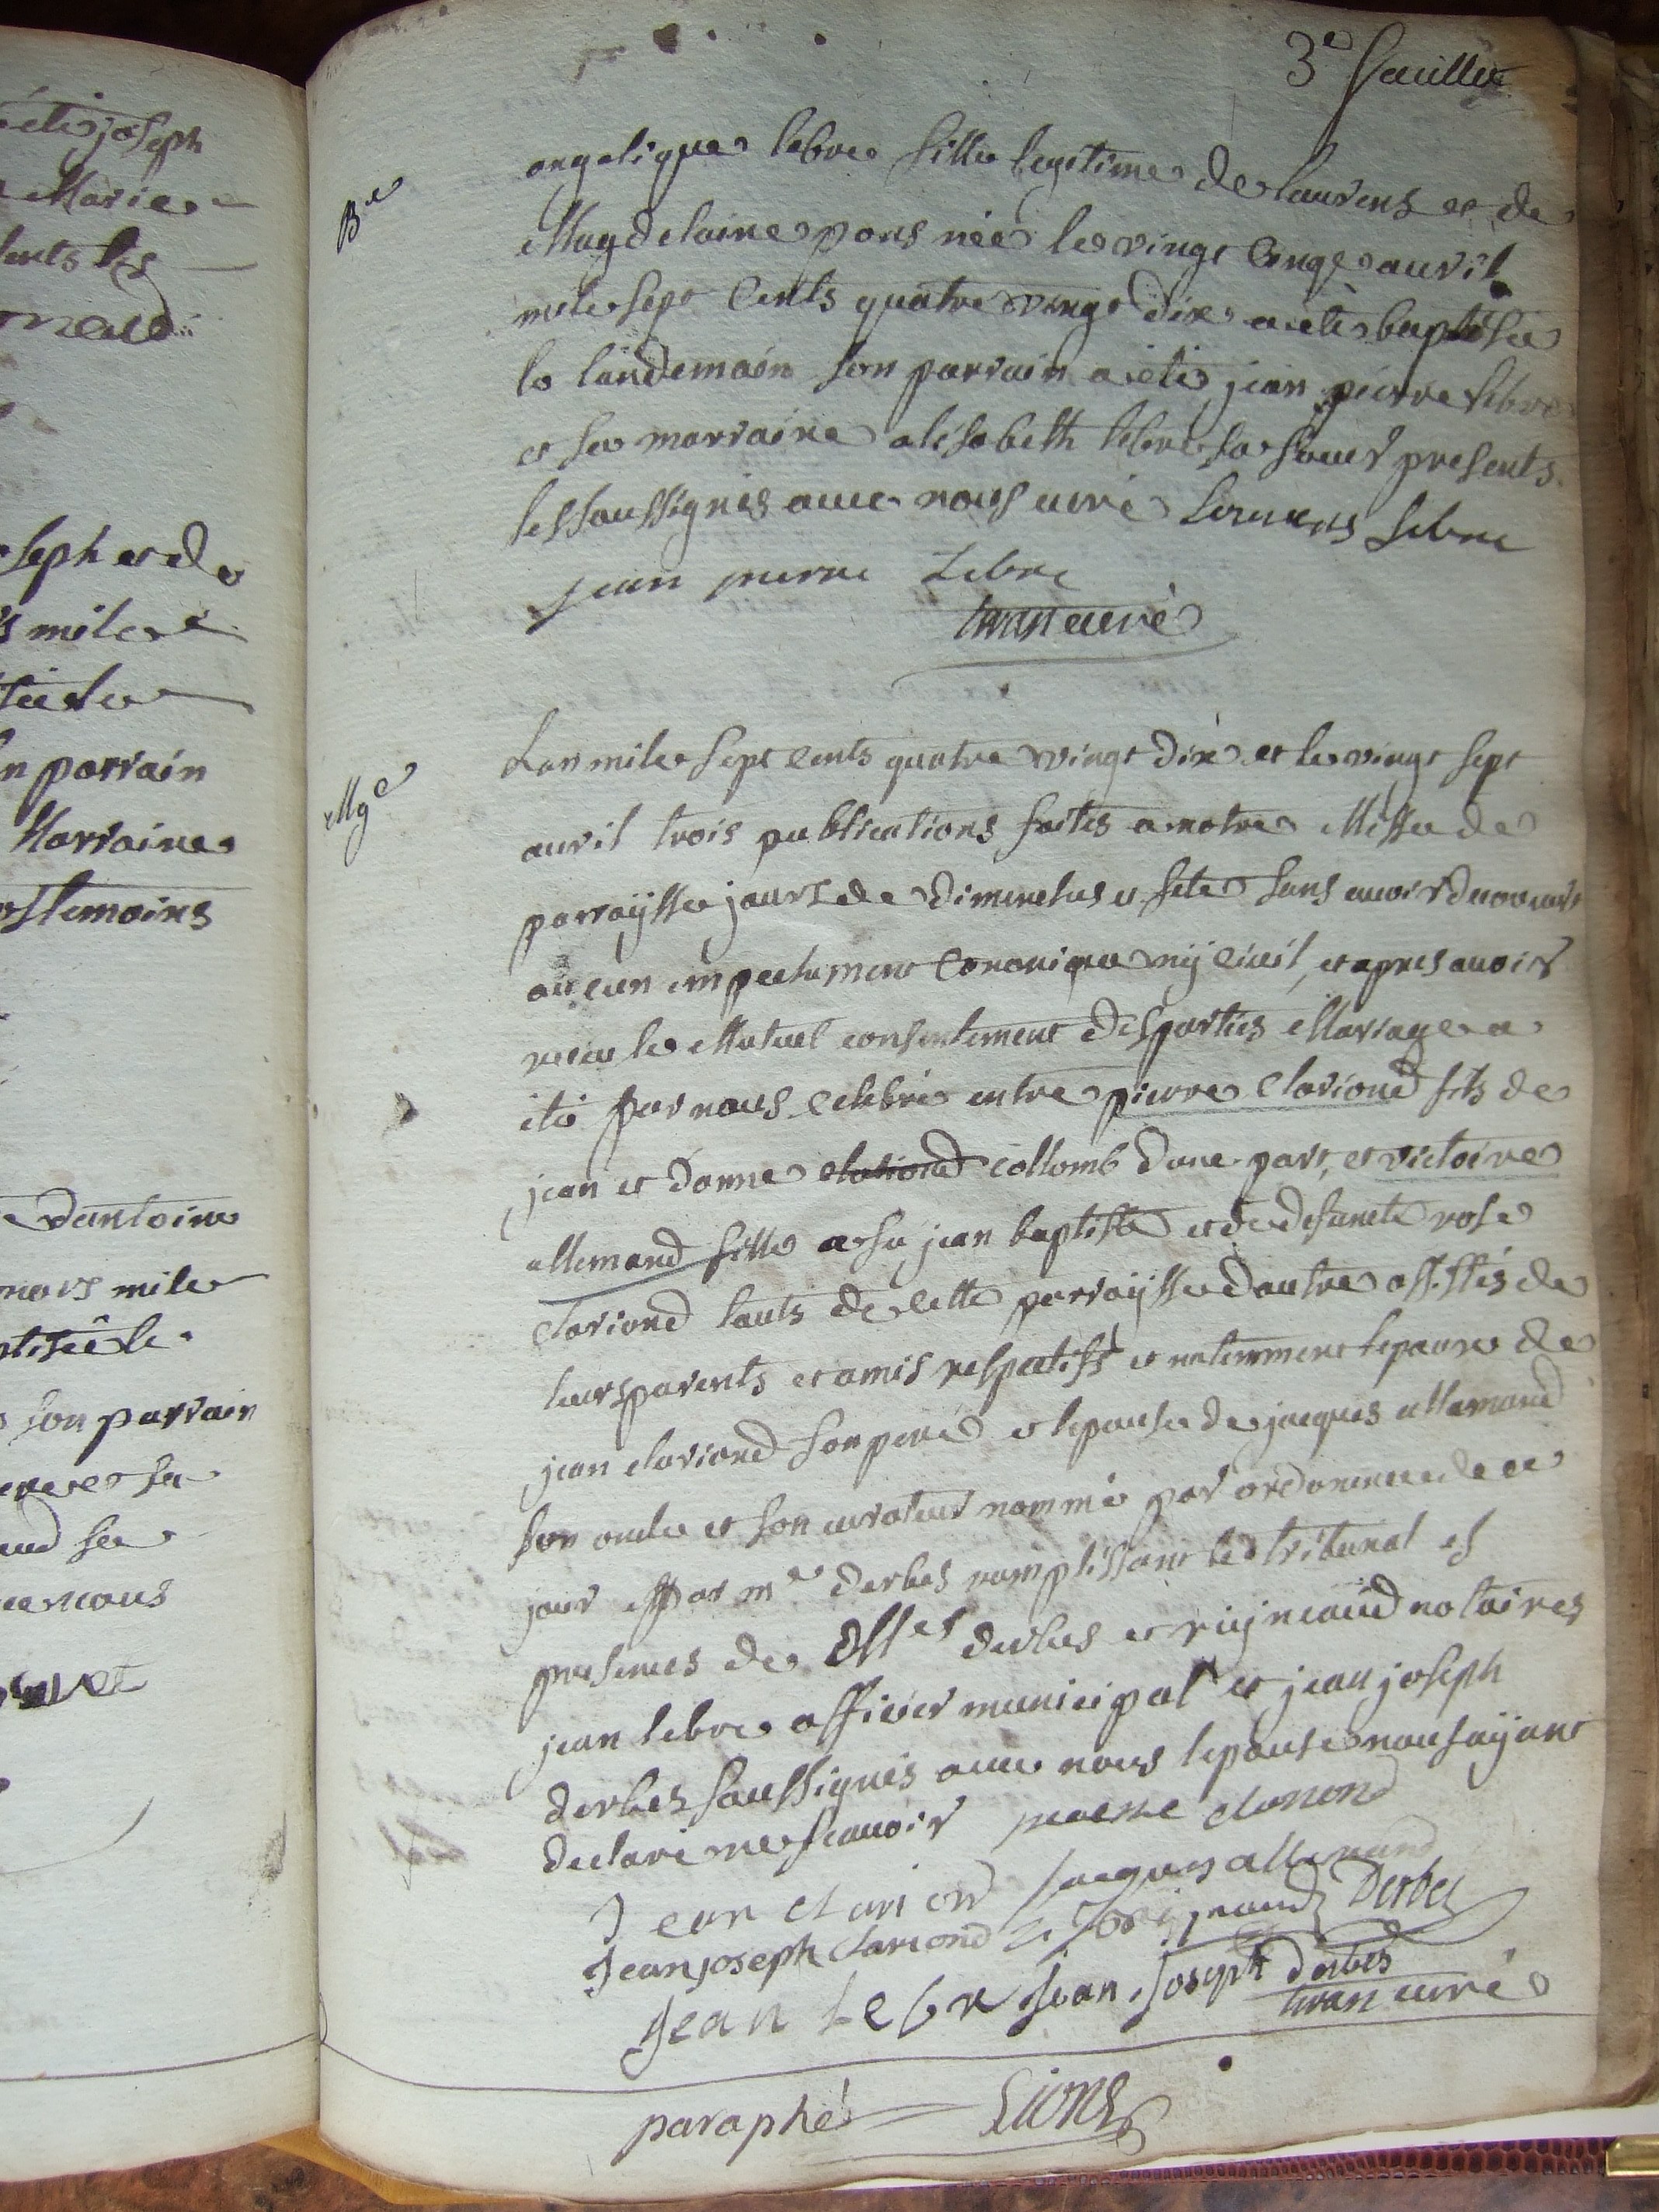 3e feuillet
Be
angelique lebre fille legitime de laurens et de
Magdelaine pons née le vingt cinq auril
mile sept cents quatre vingt dix a eté baptisée
le landemain son parrain a eté jean pierre lebre
et sa marraine elisabeth lebre sa soeur presents
les soussignés auec nous curé Laurens lebre
jean pierre Lebre
curé
Mge
Lan mile sept cents quatre vingt dix et le vingt sept
auril trois publications faites a notre Messe de
parroÿsse jours de dimenches et fete sans auoir decouvert
aucun empechement canonique nÿ ciuil, et apres auoir
receu le Mutuel consentement des parties Mariage a
eté par nous celebré entre pierre clariond fils de
jean et danne clariond collomb dune part, et victoire
allemand fille a feu jean baptiste et de defuncte rose
clariond touts de cette parroÿsse dautre assistés de
leurs parents et amis respectifs et notemment lepoux de
jean clariond son pere et lepouse de jacques allemand
son oncle et son curateur nommé par ordonnance de ce
jour par me derbes ramplissant le tribunal es
presences de Mes derbes et reijneaud notaires
jean lebre officier municipal et jean joseph
derbes soussignés auec nous lepouse nous aÿant
declaré ne scauoir pierre clariond
Jean clariond jacques allemand
Jean joseph clariond Derbes
Jean Lebre jean joseph derbes
curé
paraphé Lions
à eté joseph
Marie
joseph et de
mile
son parrain
Marraine
temoins
dantoine
mars mile
son parrain
sa
nous